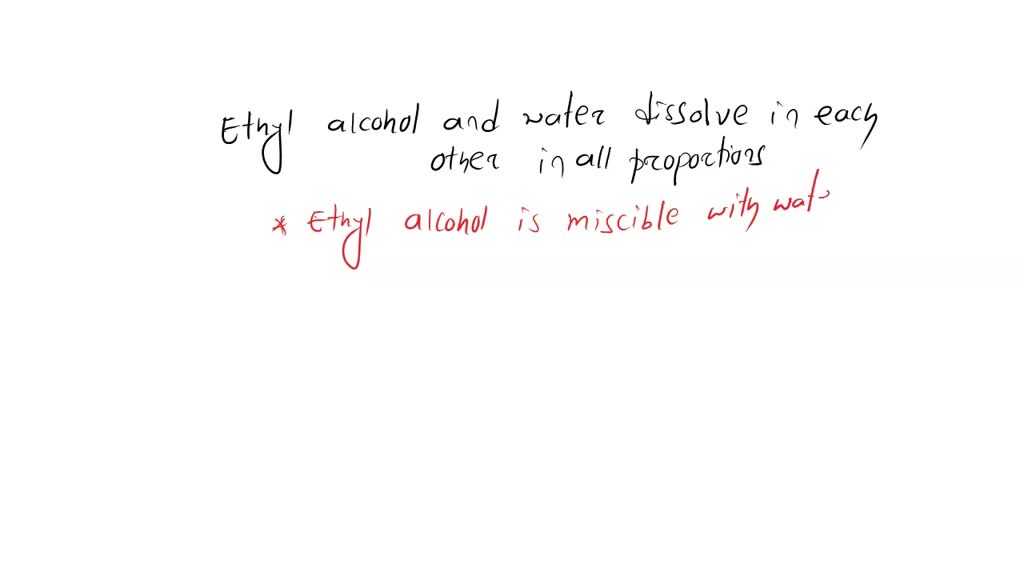 Ethyl alcohol and water dissolve in each
other in all proportions
* Ethyl alcohol is miscible with wat